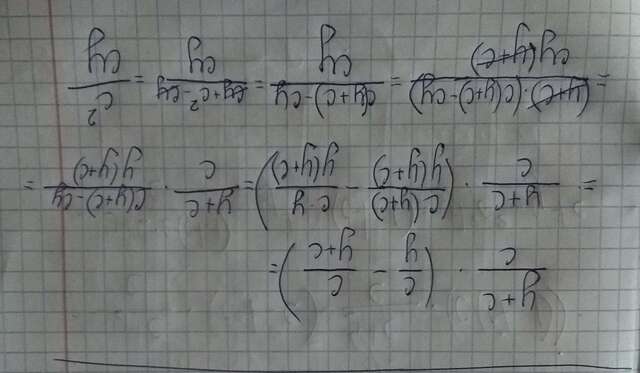 \frac{y+c}{c} · (\frac{c}{y} - \frac{c}{y+c}) =
= \frac{y+c}{c} · (\frac{c·(y+c)}{y(y+c)} - \frac{c·y}{y(y+c)}) = \frac{y+c}{c} · \frac{c(y+c)-cy}{y(y+c)} =
= \frac{(y+c)·(c(y+c)-cy)}{cy(y+c)} = \frac{c(y+c)-cy}{cy} = \frac{cy+c²-cy}{cy} = \frac{c²}{cy}